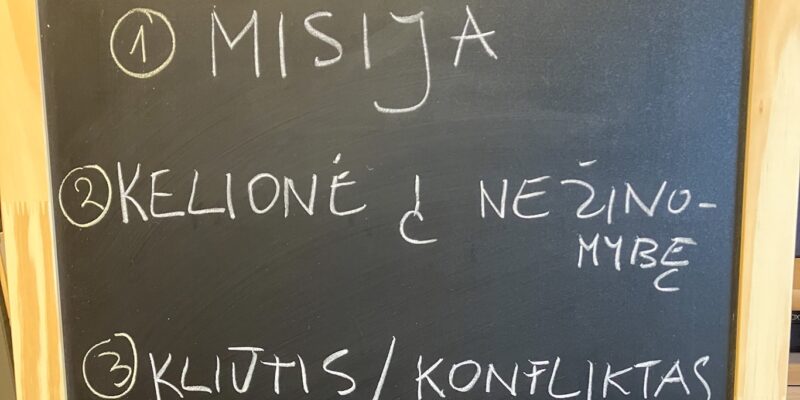 ① MISIJA
② KELIONĖ Į NEŽINO-
MYBĘ
③ KLIŪTIS / KONFLIKTAS